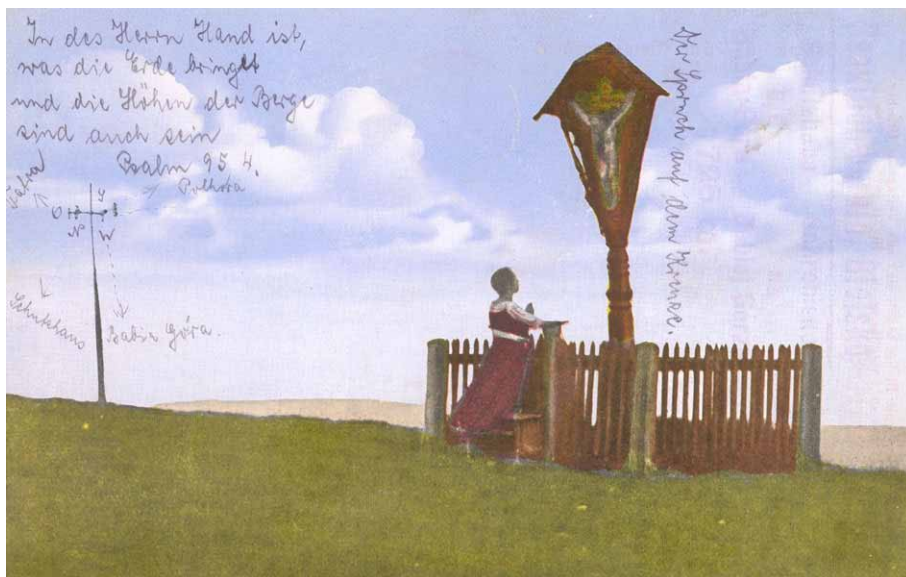 In des Herrn Hand ist,
was die Erde bringet
und die Höhen der Berge
sind auch sein
Psalm 95 4.
Tatra
Polhora
O
N W
Schutzhaus
Babia góra.
Der Spruch auf dem Kreuze.